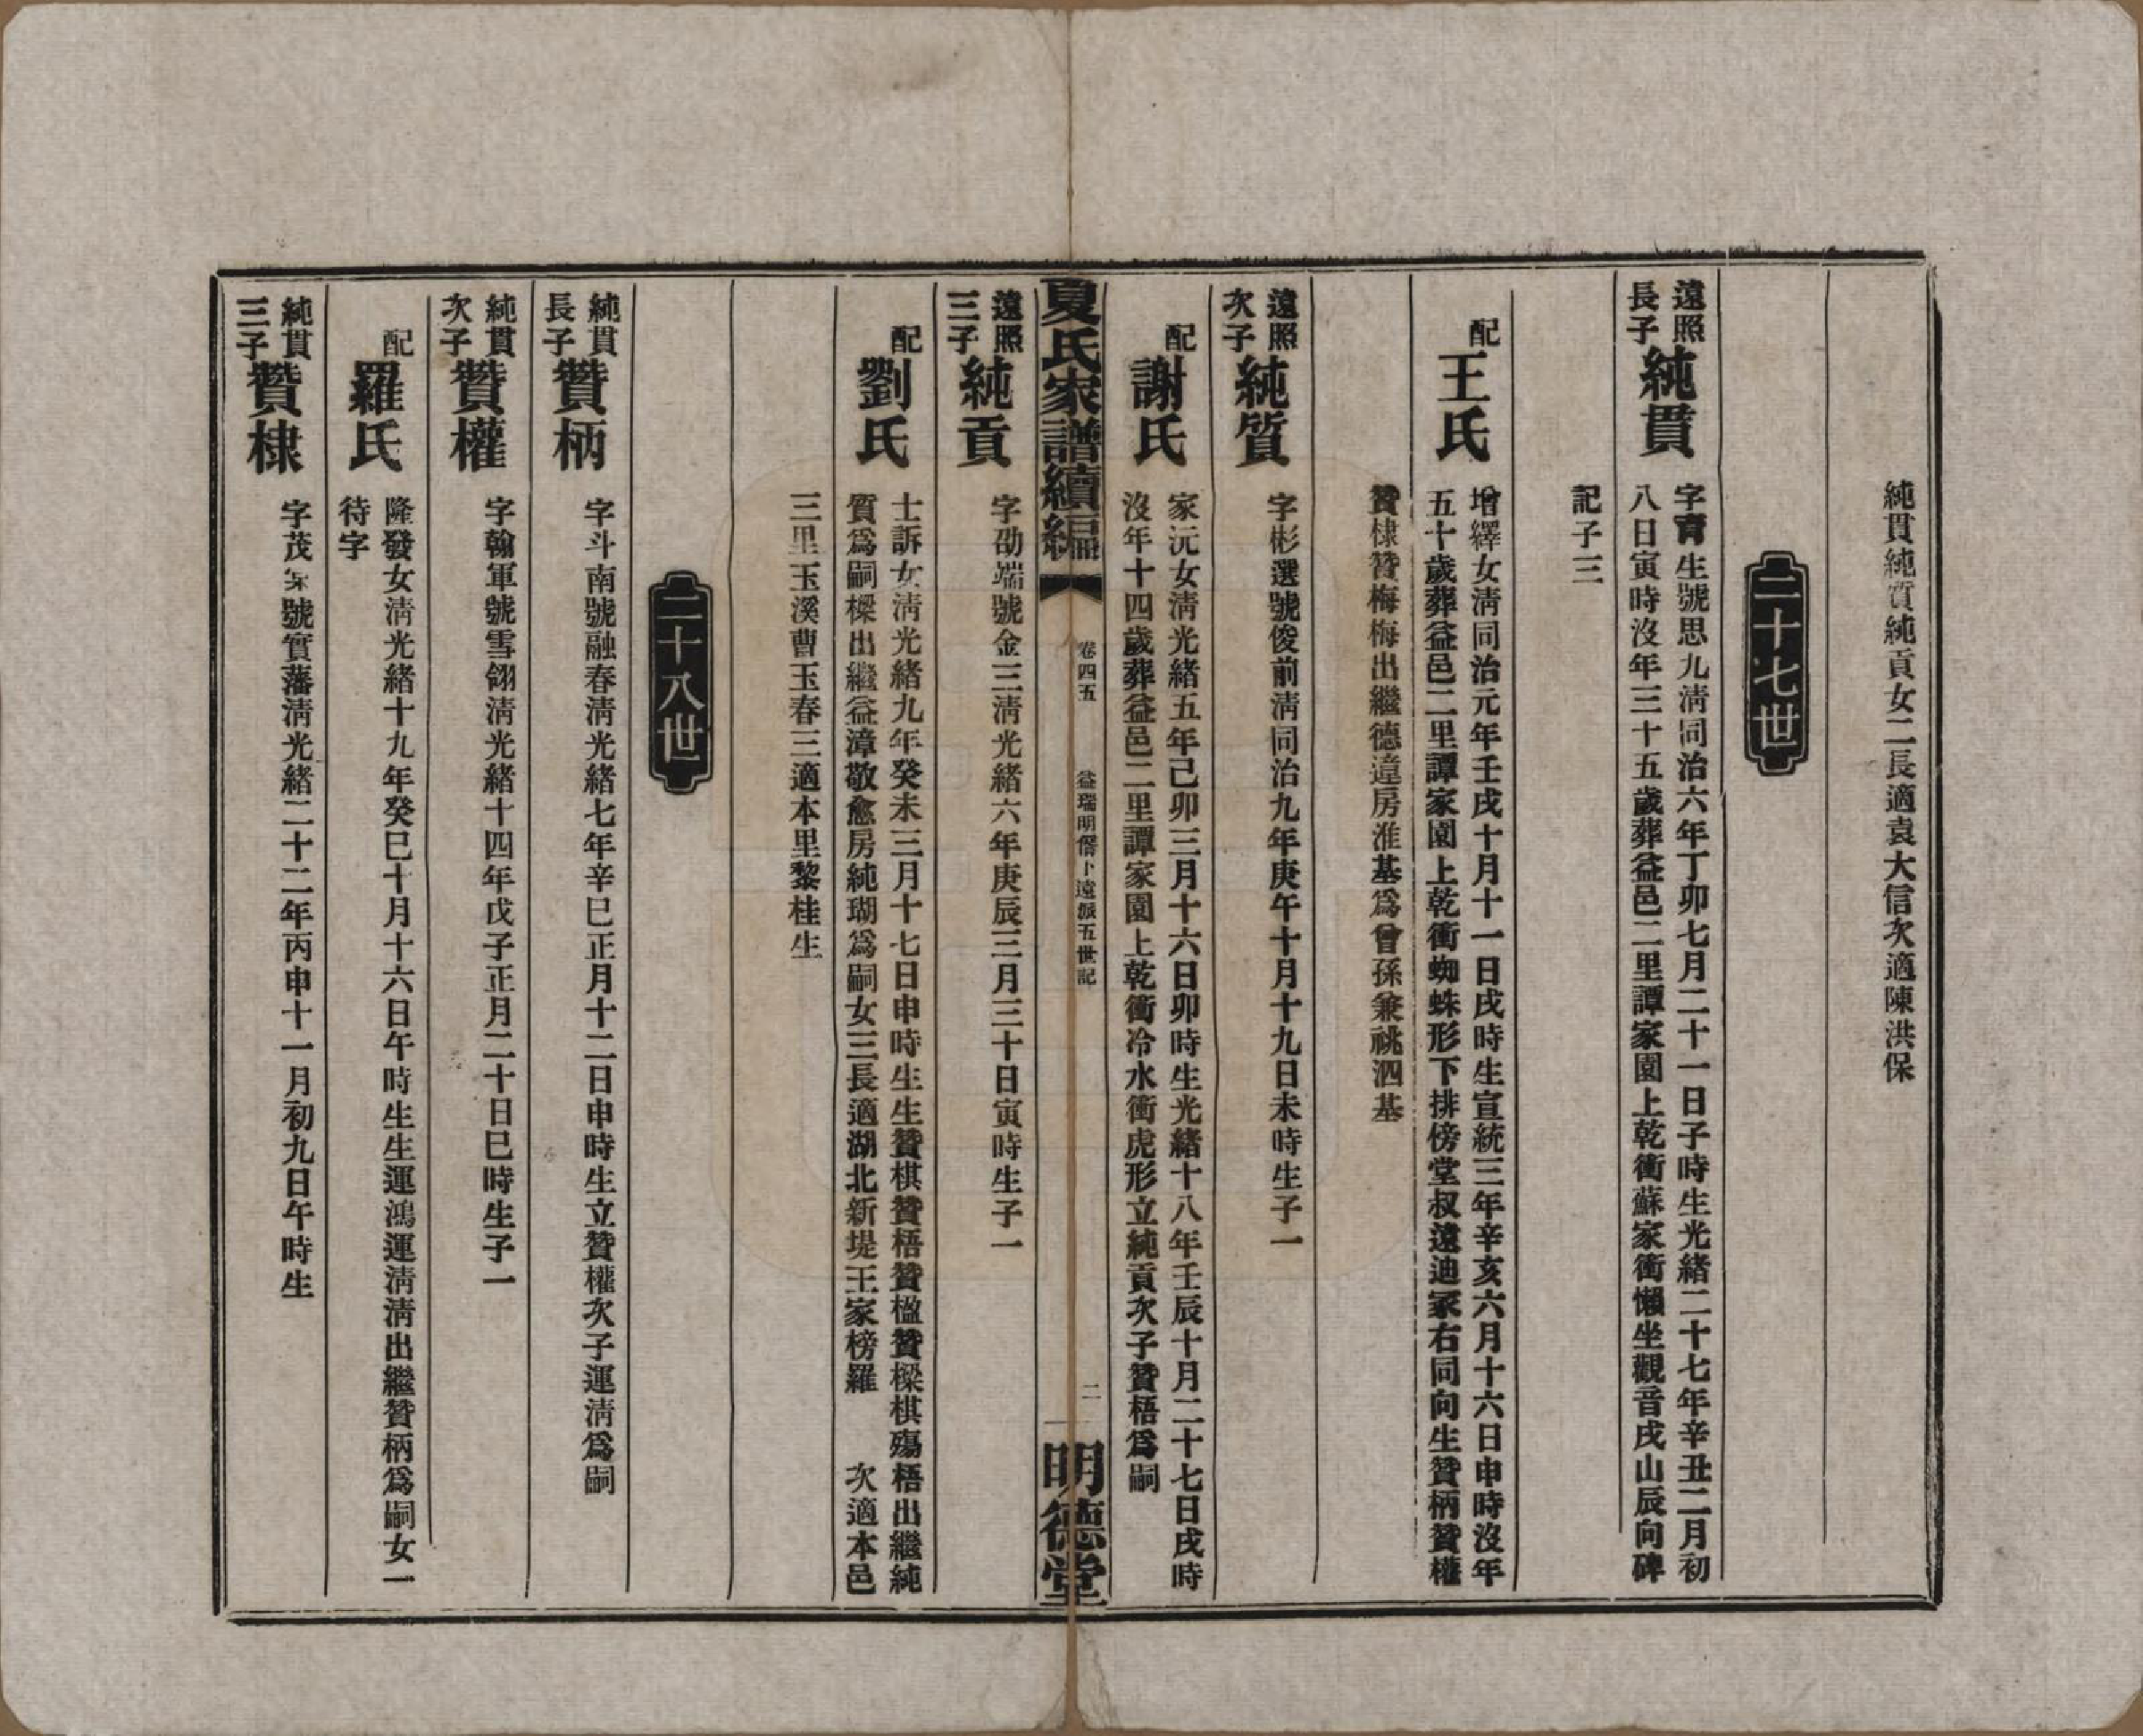 純貫純質純貢女二長適袁大信次適陳洪保
二十七世
遠照長子
純貫
字青生號思九淸同治六年丁卯七月二十一日子時生光緒二十七年辛丑二月初
八日寅時沒年三十五歲葬益邑二里譚家園上乾衝蘇家衝懶坐觀音戌山辰向碑
記子三
配
王氏
增繹女淸同治元年壬戌十月十一日戌時生宣統三年辛亥六月十六日申時沒年
五十歲葬益邑二里譚家園上乾衝蜘蛛形下排傍堂叔遠迪冢右同向生贊柄贊權
贊棣贊梅梅出繼德達房淮基爲曾孫兼祧泗基
遠照次子
純質
字彬選號俊前淸同治九年庚午十月十九日未時生子一
配
謝氏
家沅女淸光緒五年己卯三月十六日卯時生光緒十八年壬辰十月二十七日戌時
沒年十四歲葬益邑二里譚家園上乾衝冷水衝虎形立純貢次子贊梧爲嗣
遠照三子
純貢
字劭端號金三淸光緒六年庚辰三月三十日寅時生子一
夏氏家譜續編
卷四五
益瑞明僭卜遠派五世記
二
明德堂
配
劉氏
士訴女淸光緒九年癸未三月十七日申時生生贊棋贊梧贊楹贊樑棋殤梧出繼純
質爲嗣樑出繼益漳敬愈房純瑚爲嗣女三長適湖北新堤王家榜羅 次適本邑
三里玉溪曹玉春三適本里黎桂生
二十八世
純貫長子
贊柄
字斗南號融春淸光緒七年辛巳正月十二日申時生立贊權次子運淸爲嗣
純貫次子
贊權
字翰軍號雪翎淸光緒十四年戊子正月二十日巳時生子一
配
羅氏
隆發女淸光緒十九年癸巳十月十六日午時生生運鴻運淸淸出繼贊柄爲嗣女一
待字
純貫三子
贊棣
字茂號實藩淸光緒二十二年丙申十一月初九日午時生